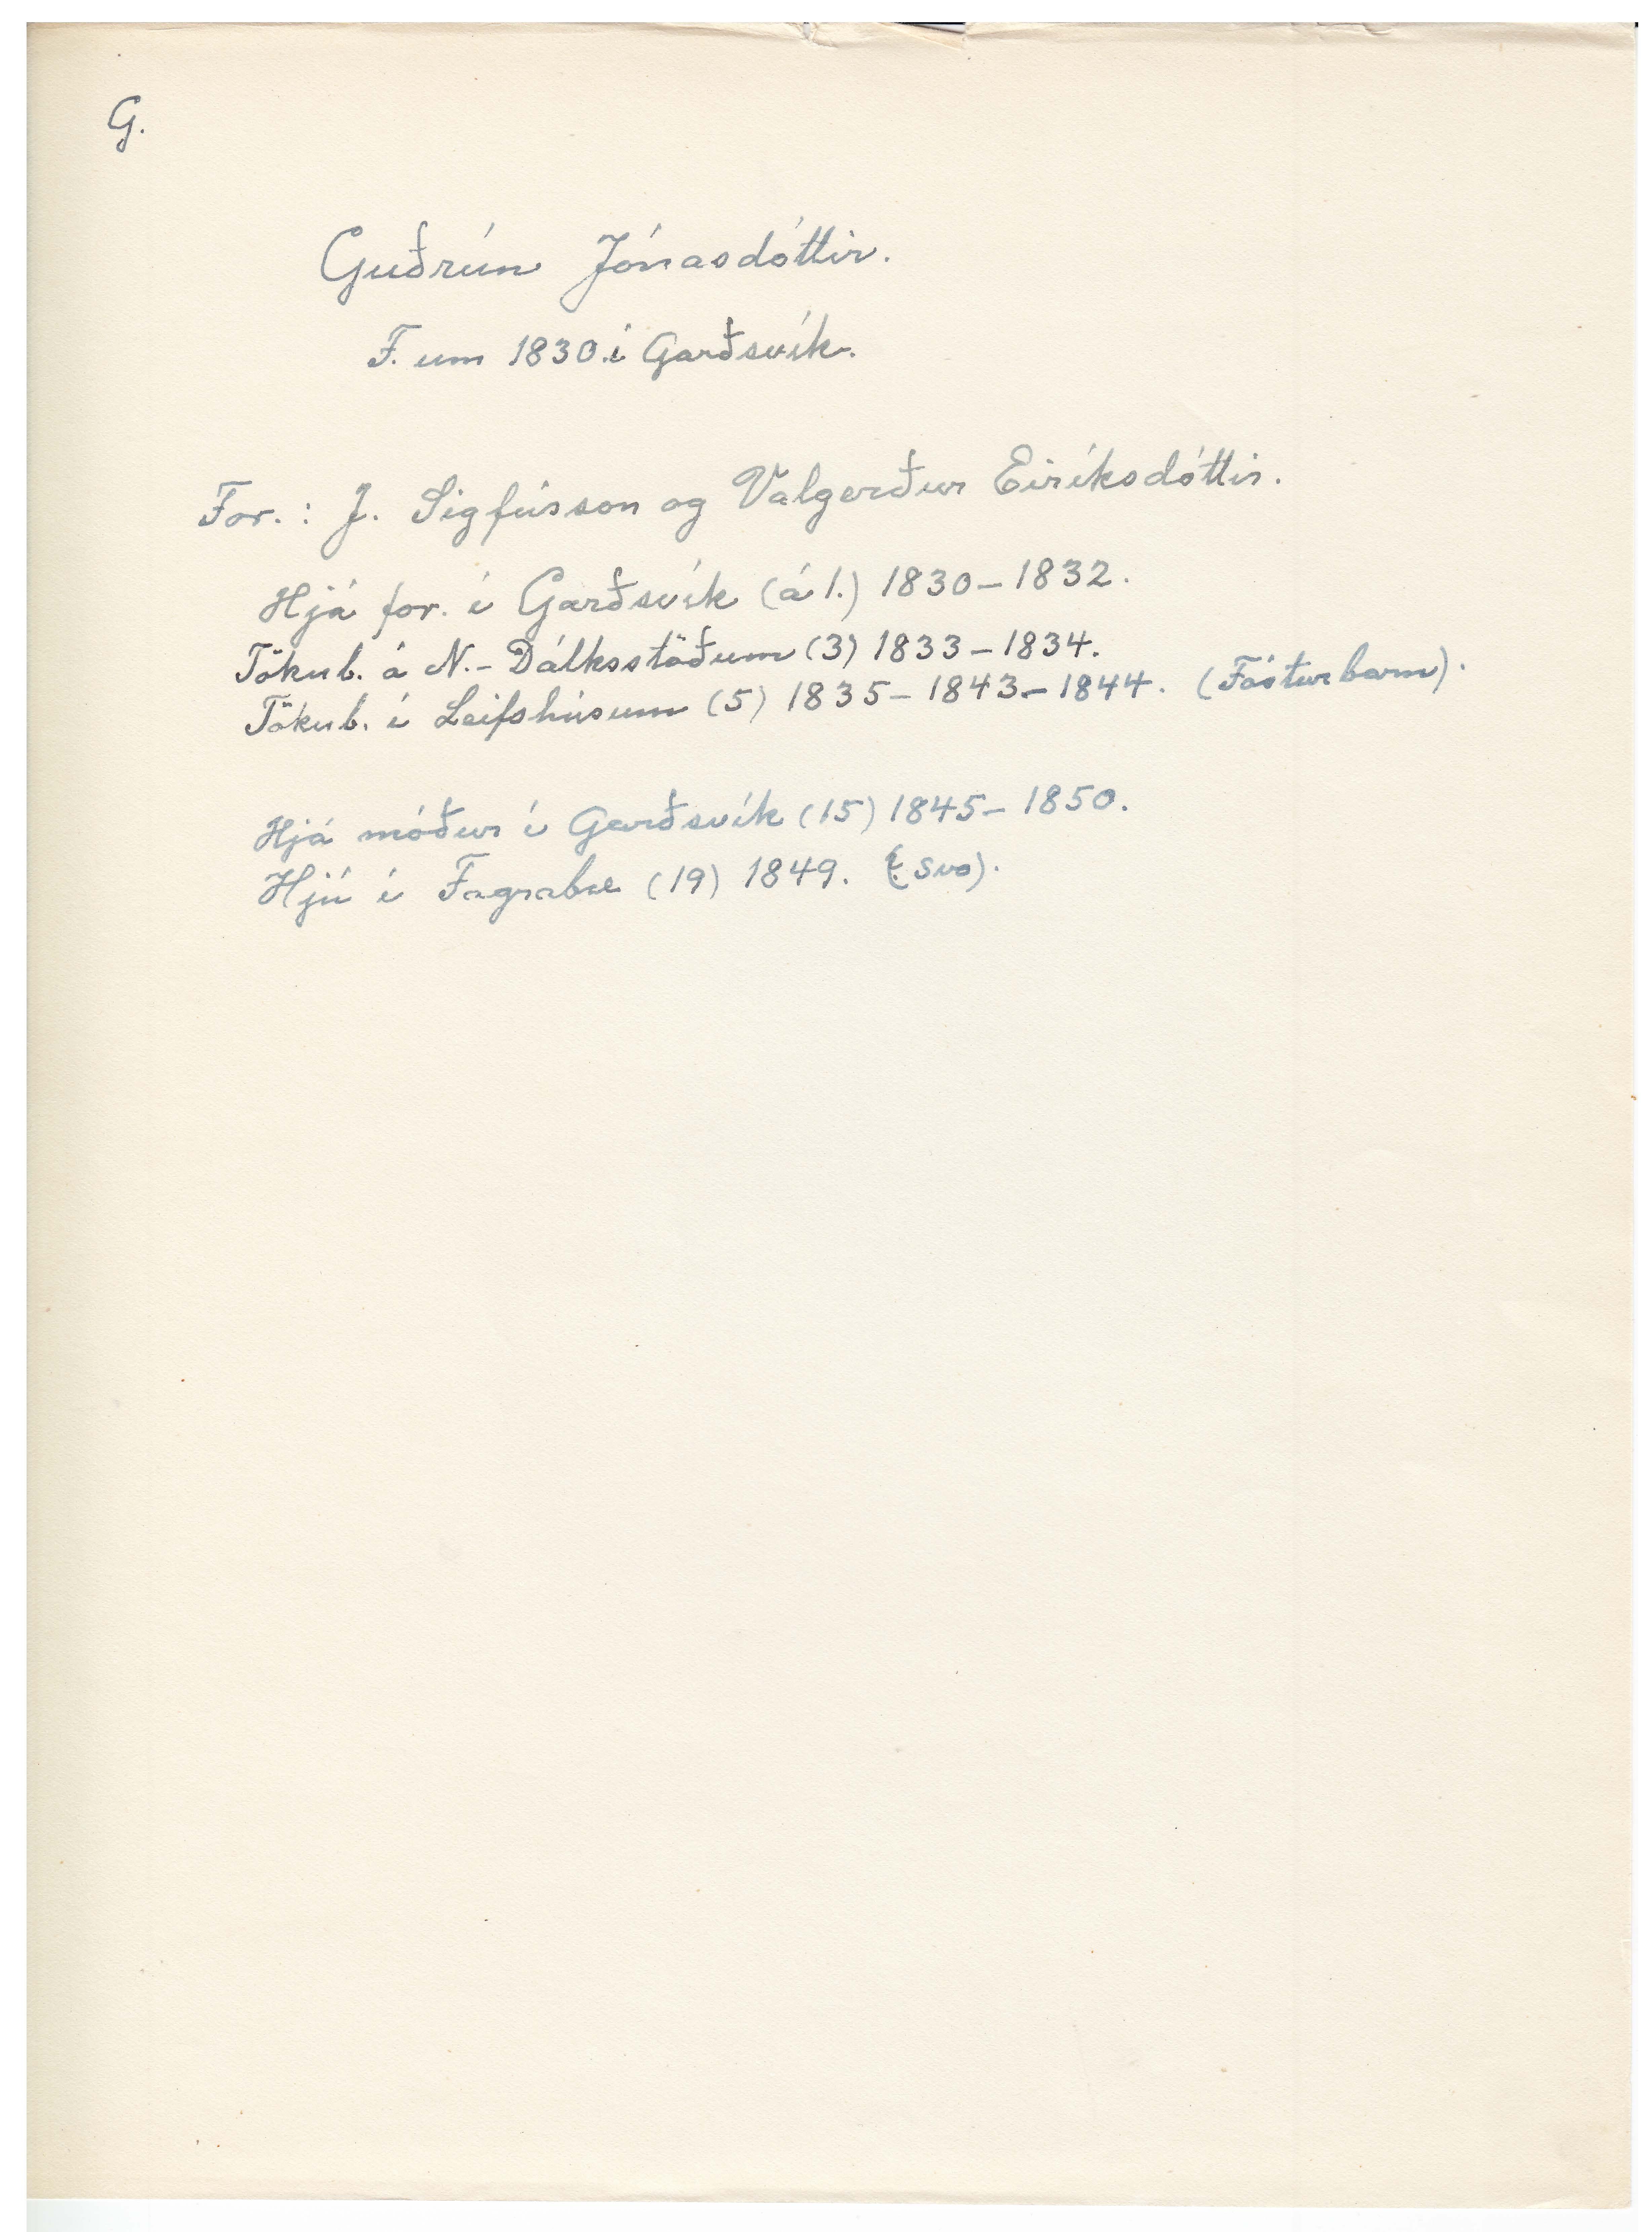 G.
Guðrún Jónasdóttir.
F. um 1830 í Garðsvík.
For.: J. Sigfússon og Valgerður Eiríksdóttir.
Hjá for. í Garðsvík (á 1.) 1830-1832.
Tökub. á N.-Dálksstöðum (3) 1833-1834.
Tökub. í Leifshúsum (5) 1835-1843-1844. (Fósturbarn).
Hjá móður í Garðsvík (15) 1845-1850.
Hjú í Fagrabæ (19) 1849. (svo).